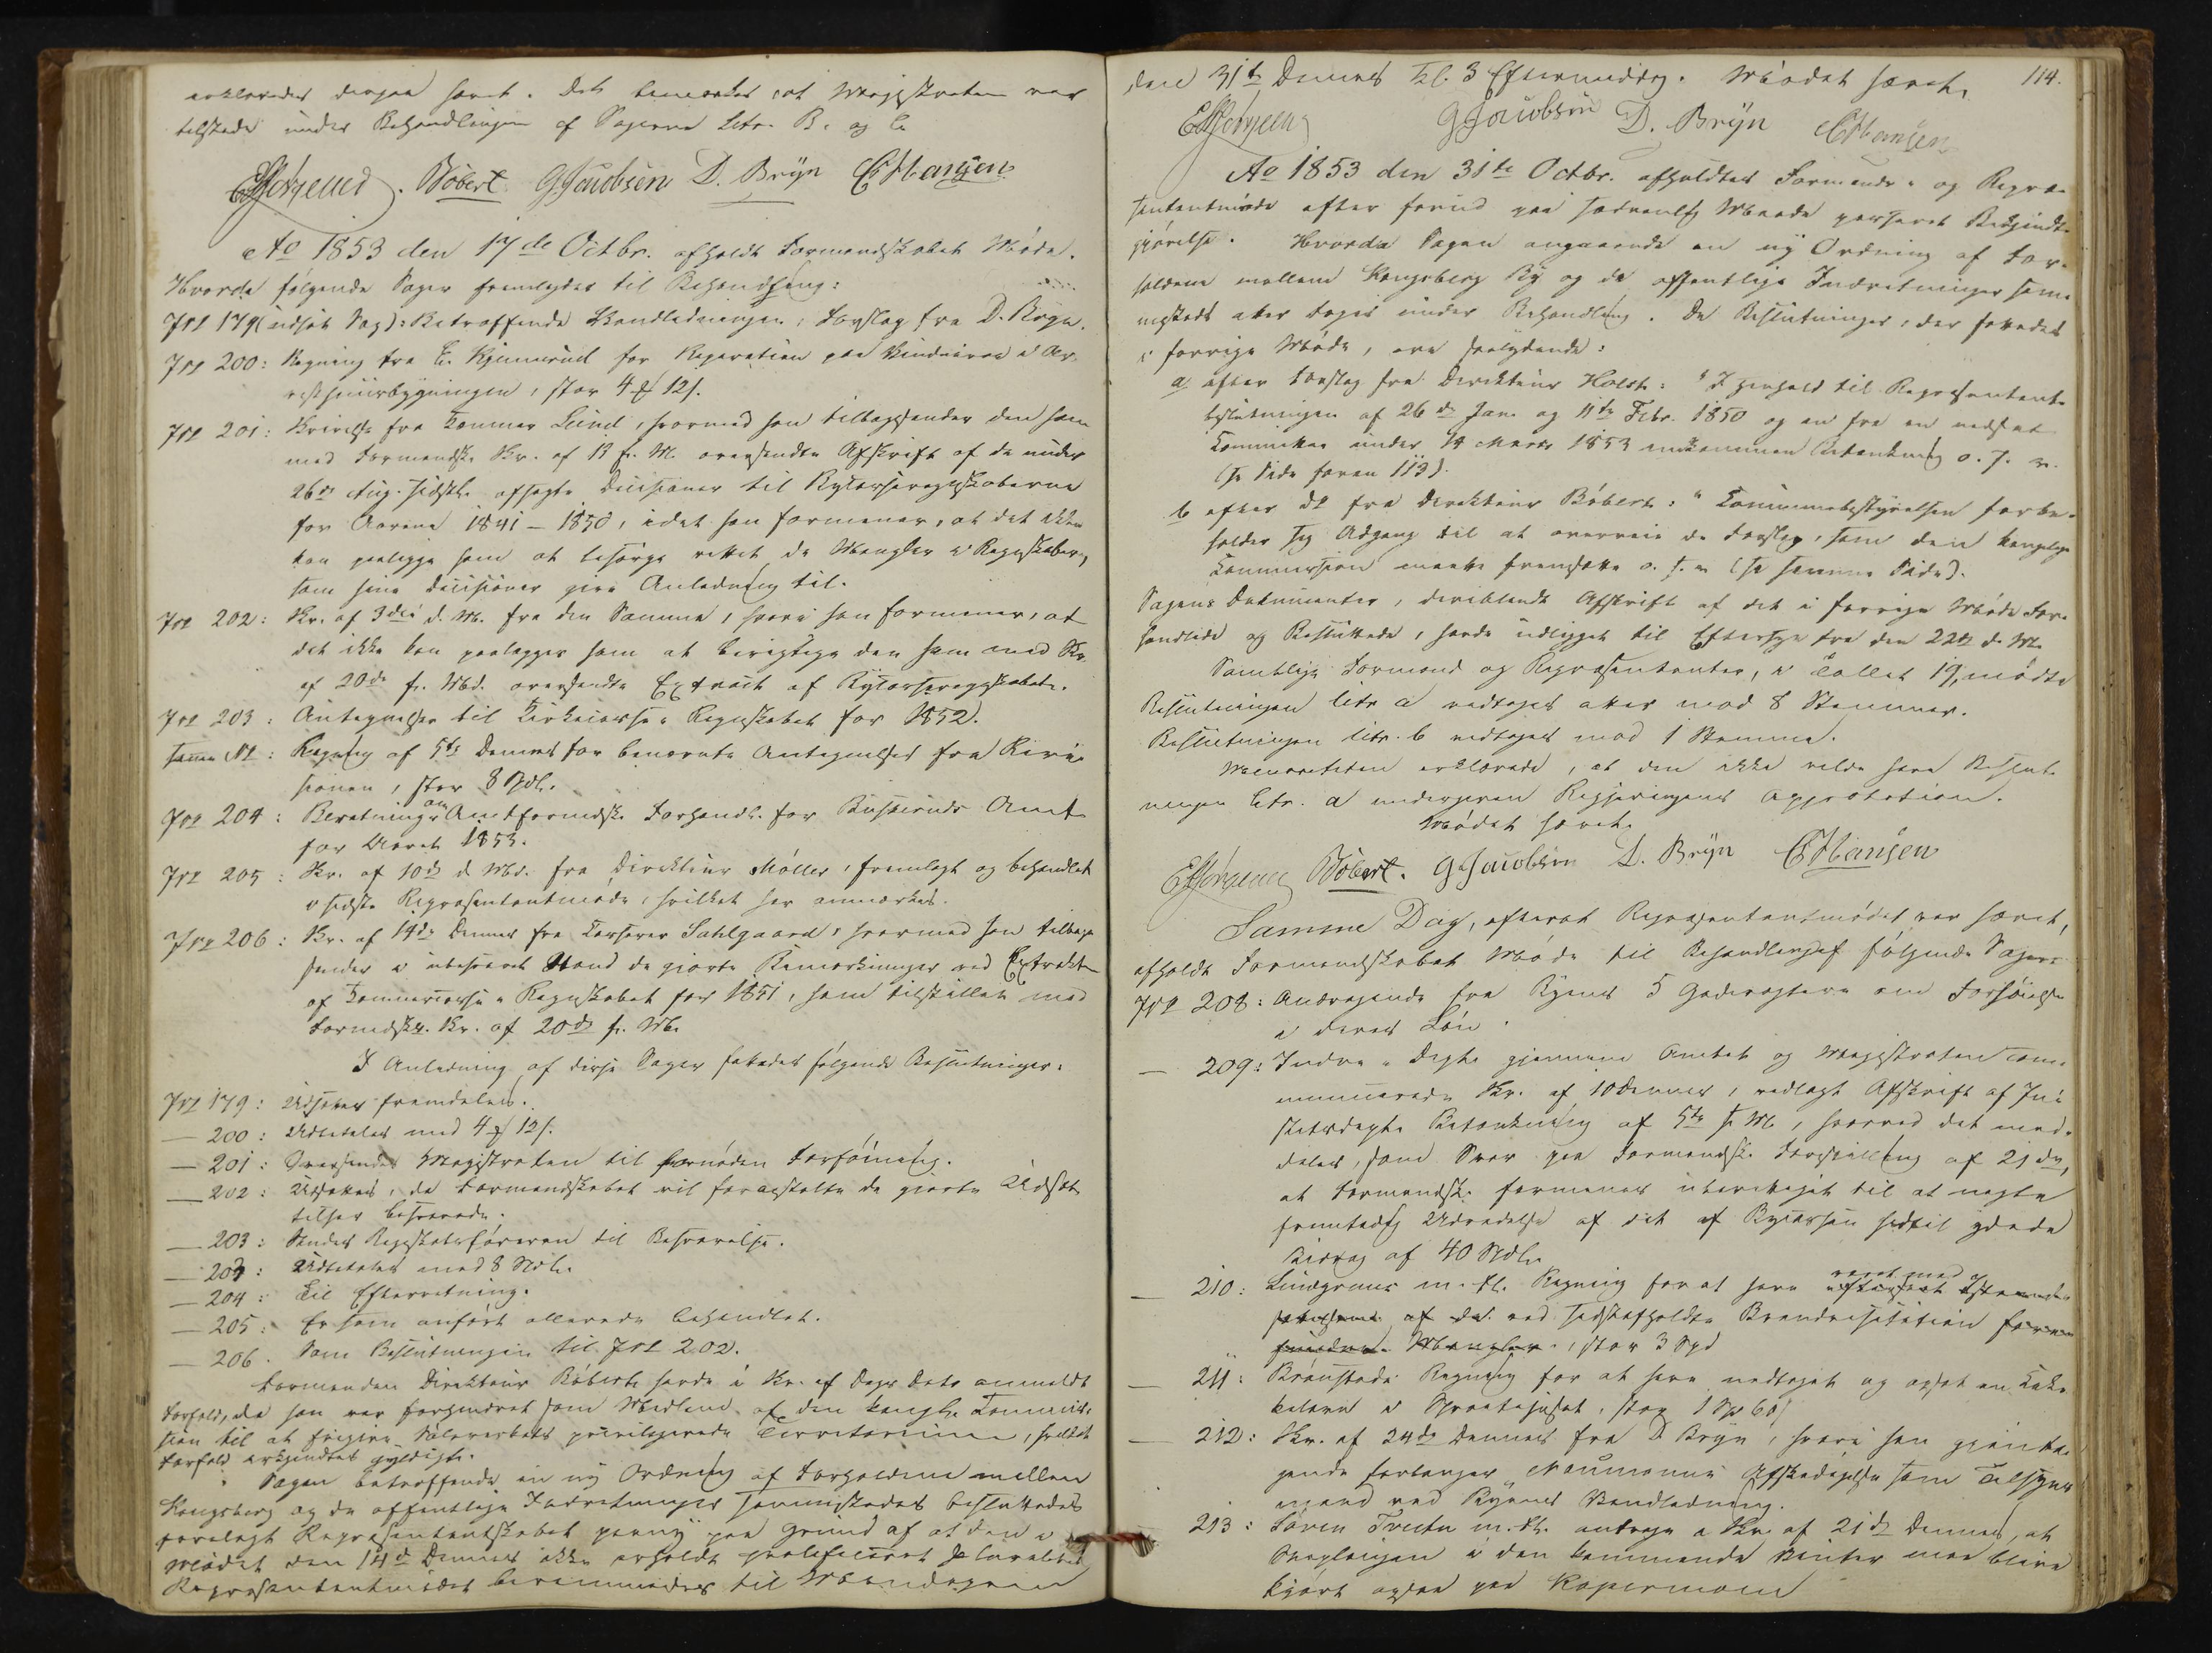 erklæredes derpaa hævet. Det bemærkes, at Magistraten var
tilstede under Behandlingen af Sagerne Litr. B. og C.
Böbert. G Jacobsen D. Bryn C Hansen
Ao 1853 den 17de Octbr. afholdt Formandskabet Møde.
Hvorda følgende Sager fremlagdes til Behandling:
Jrl 179 (udsat Sag): Betræffende Vandledningen, Forslag fra D. Bryn.
Jrl 200: Regning fra E. for Reparation paa Vinduerne i Ar-
resthuusbygningen, stor 4 ort 12 s.
Jrl 201: Skrivelse fra Lund, hvormed han tilbagesender den ham
med Formandsk. Skr. af 13 f. M. oversendte Afskrift af de under
26de Aug. sidstl. afsagte Decisioner til Bycasseregnskaberne
for Aarene 1841 – 1850, idet han formener, at det ikke
kan paaligge ham at besørge rettet de Mangler i Regnskaberne,
som hine Decisioner give Anledning til.
Jrl 202: Skr. af 3die d. M. fra den Samme, hvori han formener, at
det ikke kan paalægges ham at berigtige den ham med Skr.
af 20de f. Md. oversendte Extract af Bycasseregnskabet.
Jrl 203: Antegnelser til Kirkecasse-Regnskabet for 1852.
samme No: Regning af 5te Dennes for benævnte Antegnelser fra Revi-
sionen, stor 8 Spdl.
Jrl 204: Beretning om Amtformdsk. Forhandl. for Buskeruds Amt
for Aaret 1853.
Jrl 205: Skr. af 10de d. Md. fra Direkteur Møller, fremlagt og behandlet
i sidste Repræsentantmøde, hvilket her anmærkes.
Jrl 206: Skr. af 14de Dennes fra Kasserer Sahlgaard, hvormed han tilbage-
sender i ubesvaret Stand de giorte Bemærkninger ved Extrakten
af Regnskabet for 1851, ham tilstillet med
Formdsk. Skr. af 20de f. M.
I Anledning af disse Sager fattedes følgende Beslutninger:
Jrl 179: Udsættes fremdeles.
— 200: Udbetales med 4 ort 12 s.
— 201: Oversendes Magistraten til fornøden Forføining.
— 202: Udsættes, da Formandskabet vil foranstalte de giorte Udsæt-
telser besvarede.
— 203: Sendes Regnskabsføreren til Besvarelse.
— 203: Udbetales med 8 Spdl.
— 204: Til Efterretning.
— 205: Er som anført allerede behandlet.
— 206. Som Beslutningen til Jrl 202.
Formanden Direkteur Böbert havde i Skr. af Dags Dato anmeldt
Forfald, da han var forhindret som Medlem af den kongl. Commis-
sion til at frigive Sølvværkets privilegerede Territorium, hvilket
Forfald erkjendtes gyldigt.
Sagen betræffende en ny Ordning af Forholdene mellem
Kongsberg og de offentlige Indretninger sammesteds besluttedes
forelagt Repræsentantskabet paany paa Grund af at den i
Mødet den 14de Dennes ikke erholdt qualificeret Pluralitet.
Repræsentantmødet berammedes til Mandagen
114.
den 31te Dennes Kl. 3 Eftermiddag. Mødet hævet.
G Jacobsen D. Bryn C Hansen
Ao 1853 den 31te Octbr. afholdtes Formands- og Repræ-
sentantmøde efter forud paa sædvanlig Maade passeret Bekjendt-
gjørelse. Hvorda Sagen angaaende en ny Ordning af For-
holdene mellem Kongsberg By og de offentlige Indretninger sam-
mesteds atter toges under Behandling. De Beslutninger, der fattedes
i forrige Møde, ere saalydende:
a. efter Forslag fra Direkteur Holst: "I Henhold til Repræsentant-
beslutningen af 26de Jan. og 11te Febr. 1850 og en fra en nedsat
Committee under 14 Marts 1853 indkommen Betænkning o. s. v.
(se Side foran 113).
b efter do fra Direkteur Böbert: "Communebestyrelsen forbe-
holder sig Adgang til at overveie de Forslag, som den kongelige
Commission maatte fremsætte o. s. v. (se samme Side).
Sagens Dokumenter, deriblandt Afskrift af det i forrige Møde For-
handlede og Besluttede, havde udligget til Eftersyn fra den 22de d. M.
Samtlige Formænd og Repræsentanter, i Tallet 19, mødte
Beslutningen litr. a vedtoges atter mod 8 Stemmer.
Beslutningen litr. b vedtoges mod 1 Stemme.
Minoriteten erklærede, at den ikke vilde have Beslut-
ningen litr. a undergiven Regjeringens Approbation.
Mødet hævet.
Böbert. G Jacobsen D. Bryn C Hansen
Samme Dag, efterat Repræsentantmødet var hævet,
afholdt Formandskabet Møde til Behandling af følgende Sager:
Jrl 208: Andragende fra Byens 5 Gadevægtere om Forhøielse
i deres Løn.
— 209: Indre- Depts gjennem Amtet og Magistraten com-
municerede Skr. af 10 Dennes, vedlagt Afskrift af Ju-
stitsdepts Betænkning af 5te s. M., hvorved det med-
deles, som Svar paa Formandsk. Forestilling af 21de,
at Formandsk. formenes uberettiget til at nægte
fremtidig Udredelse af det af Bycassen hidtil ydede
Bidrag af 40 Spdlr.
— 210: Lindgrens m. Fl. Regning for at have været med
ved sidstafholdte Brandvisitation
Mangler, stor 3 Spd
— 211: Brønsteds Regning for at have nedtaget og opsat en Kak-
kelovn i Sprøitehuset, stor 1 Sp 60
— 212: Skr. af 24de Dennes fra D. Bryn, hvori han gjenta-
gende forlanger Neumanns Afskedigelse som Tilsyns-
mand ved Byens Vandledning.
213: Søren Tveten m. Fl. andrage i Skr. af 21de Dennes, at
Sneplougen i den kommende Vinter maa blive
kjørt ogsaa paa Kapermoen